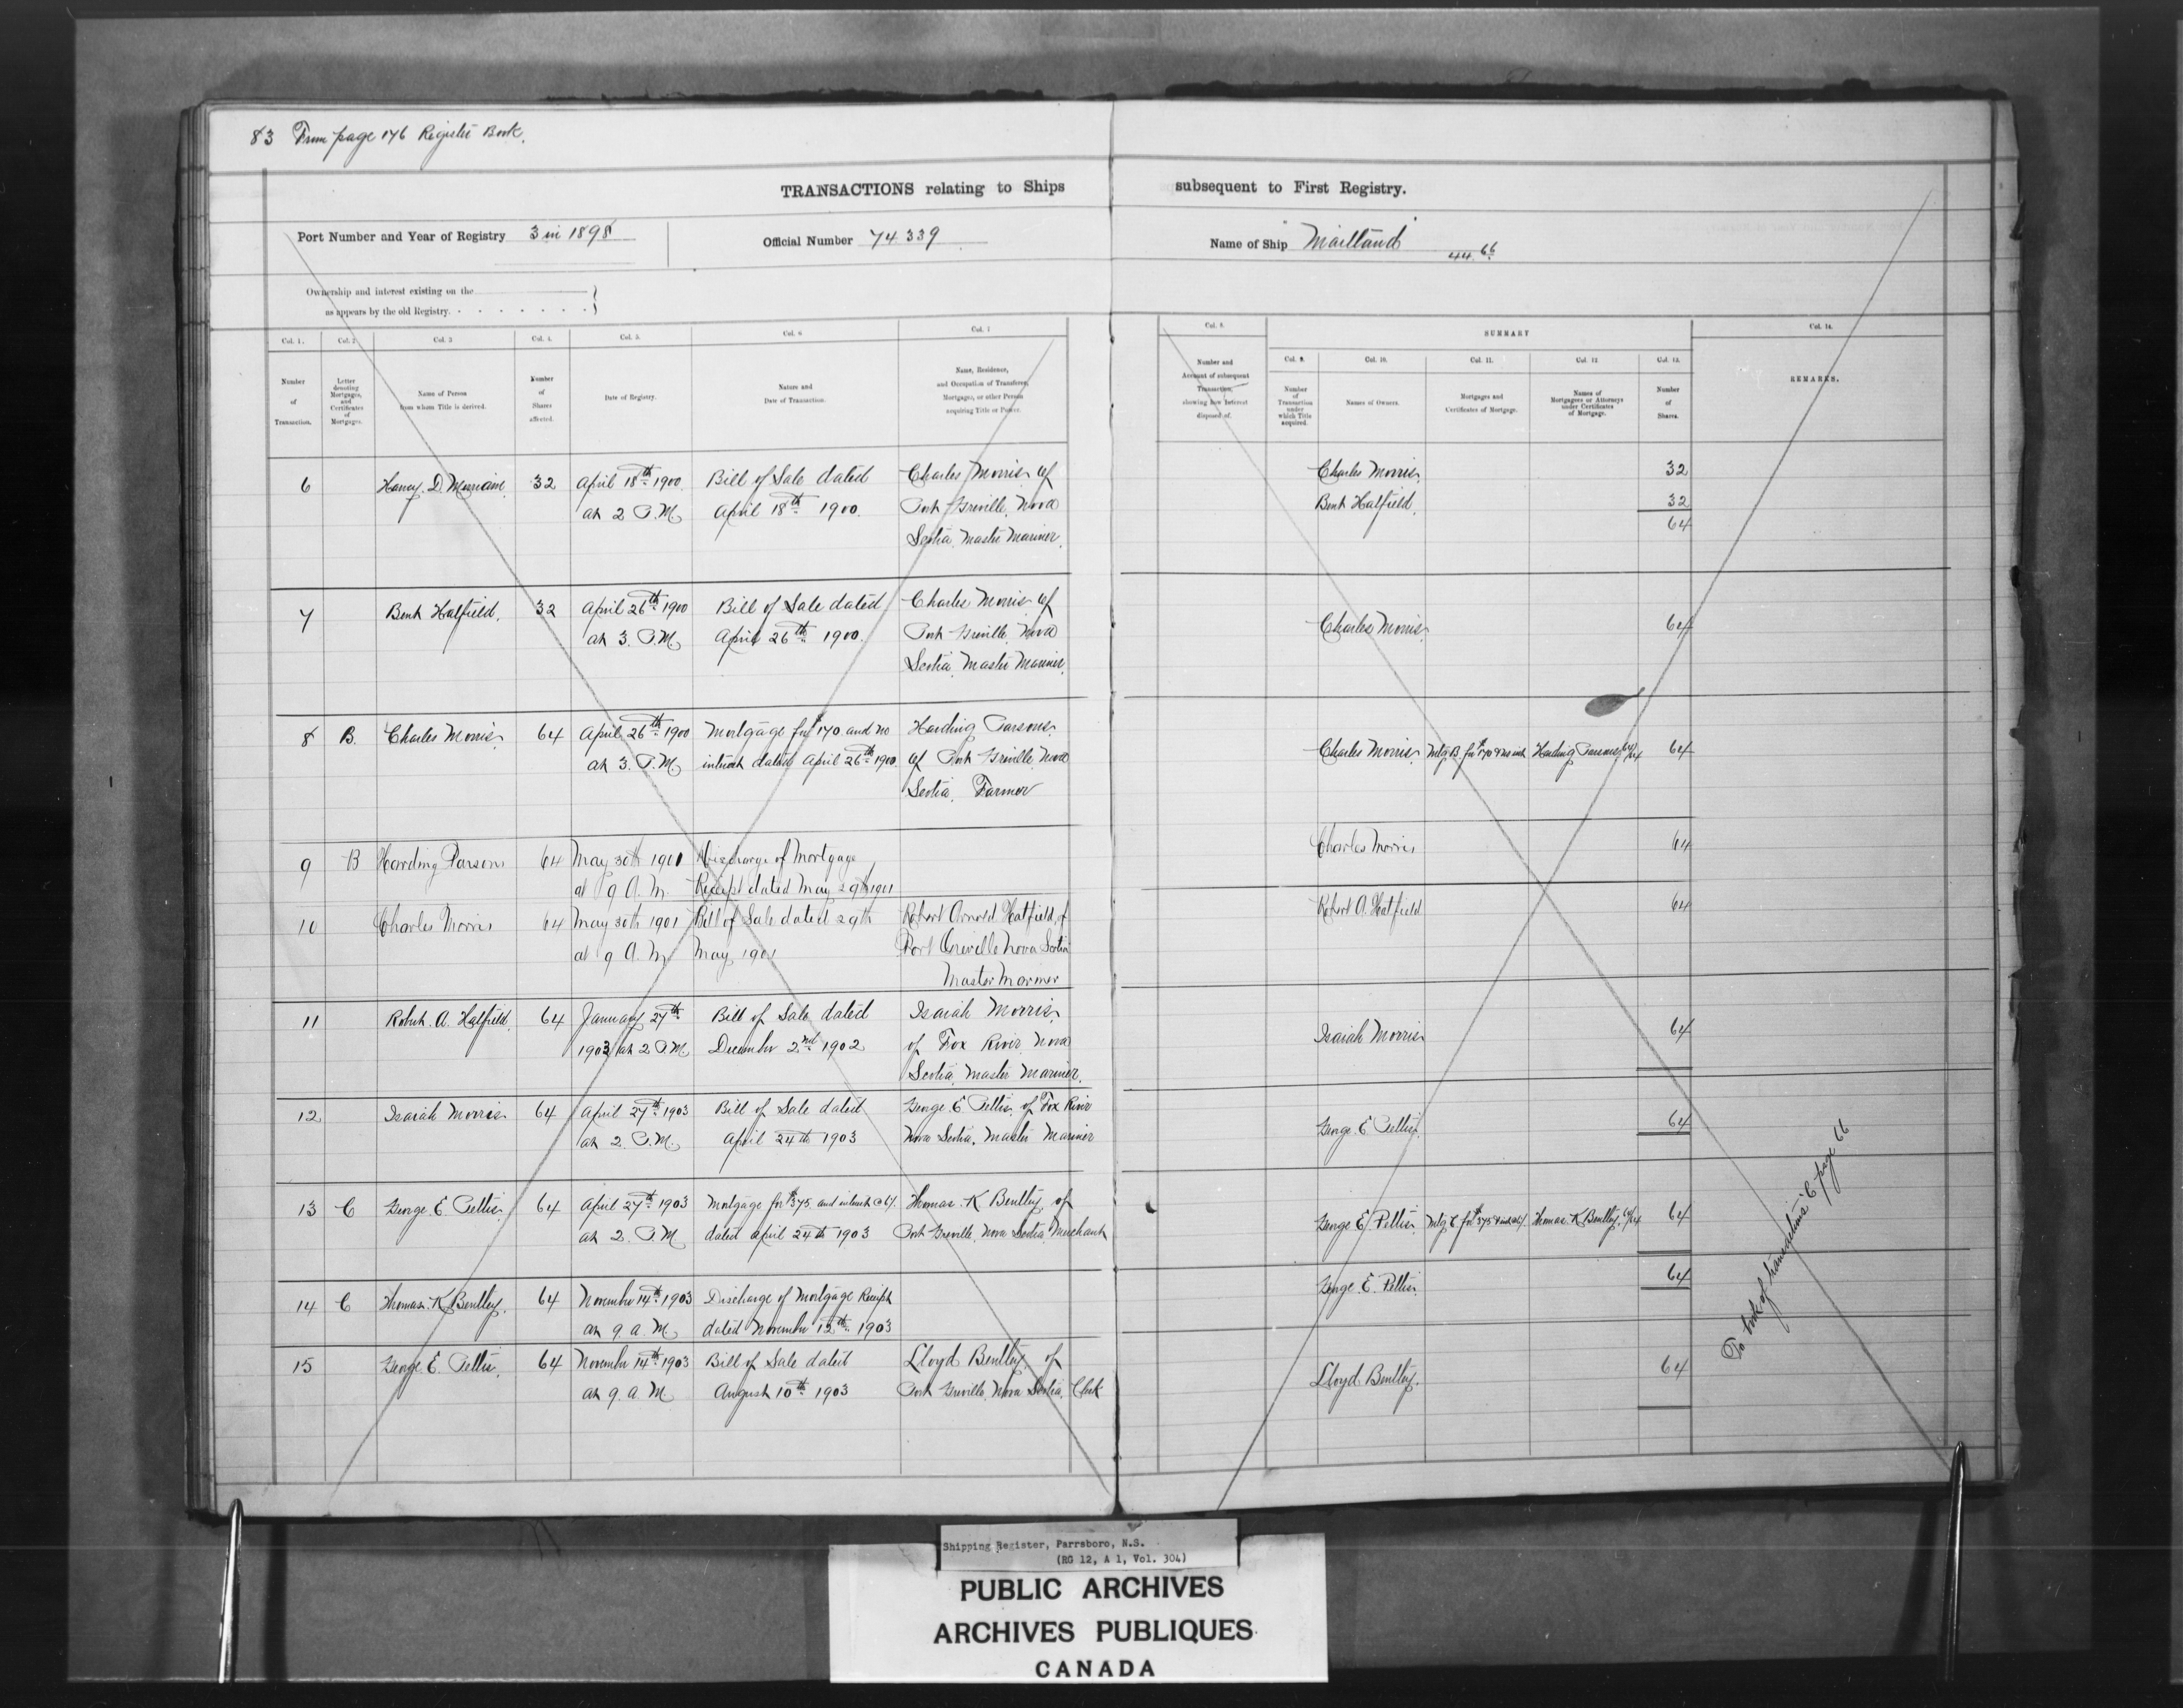 83 From page 176 Register Book.
TRANSACTIONS relating to Ships subsequent to First Registry.
Port Number and Year of Registry 3 in 1898 Official Number 74339 Name of Ship "Maitland" 44.66
Ownership and interest existing on the
as appears by the old Registry.
Col. 1. Col. 2 Col. 3 Col. 4. Col. 5. Col. 6 Col. 7 Col. 8. SUMMARY Col. 14.
Col. 9. Col. 10. Col. 11. Col. 12 Col. 13.
Number of Transaction.
Letter denoting Mortgages, and Certificates of Mortgages.
Name of Person from whom Title is derived.
Number of Shares affected.
Date of Registry.
Nature and Date of Transaction.
Name, Residence, and Occupation of Transferee, Mortgagee, or other Person acquiring Title or Power.
Number and Account of subsequent Transaction, showing how Interest disposed of.
Number of Transaction under which Title acquired.
Names of Owners.
Mortgages and Certificates of Mortgage.
Names of Mortgagees or Attorneys under Certificates of Mortgage.
Number of Shares.
REMARKS.
6 D. Merriam 32 April 18th 1900 Bill of Sale dated Charles Morris of Charles Morris 32
at 2 P.M. April 18th 1900. Port Greville, Nova Bent Hatfield. 32
Scotia, Master Mariner. 64
7 Bent Hatfield. 32 April 26th 1900 Bill of Sale dated Charles Morris of Charles Morris 64
at 3. P.M. April 26th 1900. Port Greville, Nova
Scotia Master Mariner.
8 B. Charles Morris 64 April 26th 1900 Mortgage for $170 and no Harding Parsons Charles Morris Mtg. B. for $170 & no int. Harding Parsons 64/64 64
at 3. P.M. interest dated April 26th 1900. of Port Greville Nova
Scotia. Farmer
9 B Harding Parsons 64 May 30th 1901 Discharge of Mortgage Charles Morris 64
at 9 A.M. Receipt dated May 29th 1901
10 Charles Morris 64 May 30th 1901 Bill of Sale dated 29th Robert Arnold Hatfield of Robert A. Hatfield 64
at 9 A.M. May 1901 Port Greville Nova Scotia
Master Mariner
11 Robert. A. Hatfield. 64 January 27th Bill of Sale dated Isaiah Morris Isaiah Morris 64
1903 at 2 P.M. December 2nd 1902 of Fox River Nova
Scotia, Master Mariner.
12 Isaiah Morris 64 April 27th 1903 Bill of Sale dated George. E Pettis, of Fox River George. E Pettis. 64
at 2. P.M. April 24th 1903 Nova Scotia, Master Mariner
13 C George E Pettis 64 April 27th 1903 Mortgage for $375. and interest @ 6%. Thomas. K Bentley of George E Pettis. Mtg C for $375 & int 6% Thomas. K Bentley, 64/64 64
at 2. P.M. dated April 24th 1903 Port Greville, Nova Scotia, Merchant
14 C Thomas. K Bentley. 64 November 14th 1903 Discharge of Mortgage Receipt George. E. Pettis. 64
at 9. a. M. dated November 12th 1903
15 George. E. Pettis. 64 November 14th 1903 Bill of Sale dated Lloyd Bentley, of Lloyd Bentley. 64
at 9. a. M. August 10th 1903 Port Greville, Nova Scotia, Clerk
To book of transactions C page 66
Shipping Register, Parrsboro, N.S.
(RG 12, A 1, Vol. 304)
PUBLIC ARCHIVES
ARCHIVES PUBLIQUES
CANADA